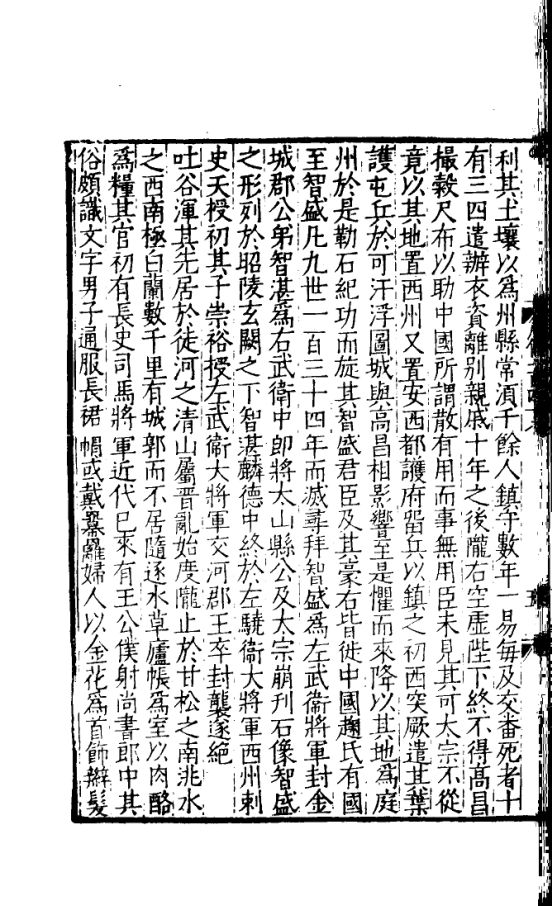 利其土壤以爲州縣常湏千餘人鎮守數年一易每及交番死者十
有三四遣辦衣資離別親戚十年之後隴右空虛陛下終不得高昌
撮穀尺布以助中國所謂散有用而事無用臣未見其可太宗不從
竟以其地置西州又置安西都護府留兵以鎮之初西突厥遣其葉
護屯兵於可汗浮圖城與高昌相影響至是懼而來降以其地爲庭
州於是勒石紀功而旋其智盛君臣及其豪右皆徙中國麴氏有國
至智盛凡九世一百三十四年而滅尋拜智盛爲左武衞將軍封金
城郡公弟智湛爲右武衞中郎將太山縣公及太宗崩刋石像智盛
之形列於昭陵玄闕之下智湛麟德中終於左驍衞大將軍西州刺
史天授初其子崇裕授左武衞大將軍交河郡王卒封襲遂絕
吐谷渾其先居於徒河之清山屬晉亂始度隴止於甘松之南洮水
之西南極白蘭數千里有城郭而不居隨逐水草廬帳爲室以肉酪
爲糧其官初有長史司馬將軍近代已來有王公僕射尚書郎中其
俗頗識文字男子通服長裙帽或戴羃䍦婦人以金花爲首飾辮髮